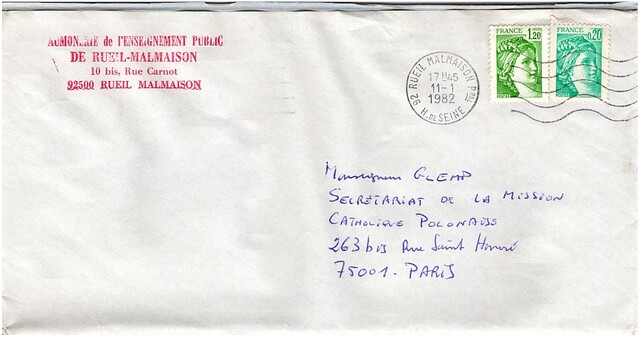 AUMONERIE de l'ENSEIGNEMENT PUBLIC
DE RUEIL-MALMAISON
10 bis, Rue Carnot
92500 RUEIL MALMAISON
92 RUEIL MALMAISON Pal
17H45
11-1
1982
H. DE SEINE
FRANCE 1,20
FRANCE 0,20
Monseigneur GLEMP
SECRETARIAT DE LA MISSION
CATHOLIQUE POLONAISE
263 bis Rue Saint Honoré
75001 - PARIS